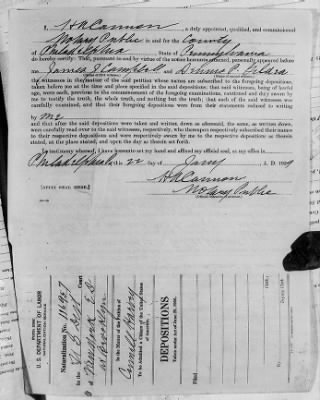 I, H A Cannon, a duly appointed, qualified, and commissioned
Notary Public in and for the County
of Philadelphia State of Pennsylvania
do hereby certify: That, pursuant to and by virtue of the notice hereto attached, personally appeared before
me James
the witnesses in the matter of the said petition whose names are subscribed to the foregoing depositions,
taken before me at the time and place specified in the said depositions; that said witnesses, being of lawful
age, were each, previous to the commencement of the foregoing examinations, cautioned and duly sworn by
me to testify the truth, the whole truth, and nothing but the truth; that each of the said witnesses was
carefully examined, and that their foregoing depositions were from their statements reduced to writing
by me
and that after the said depositions were taken and written down as aforesaid, the same, as written down,
were carefully read over to the said witnesses, who thereupon respectively subscribed their names
to their respective depositions and were respectively sworn by me to the respective depositions as therein
stated, at the place stated, and upon the day as therein set forth.
In testimony whereof, I have hereunto set my hand and affixed my official seal, at my office in
Philadelphia this 22 day of Jany, A. D. 19
H A Cannon
Notary Public
[AFFIX SEAL HERE.]
U. S. DEPARTMENT OF LABOR
NATURALIZATION SERVICE
Naturalization No. 116907
In the U S Dist Court
New York E D
at Brooklyn
In the Matter of the Petition of
Harry
To be Admitted a Citizen of the United States
of America.
DEPOSITIONS
Taken under Act of June 29, 1906.